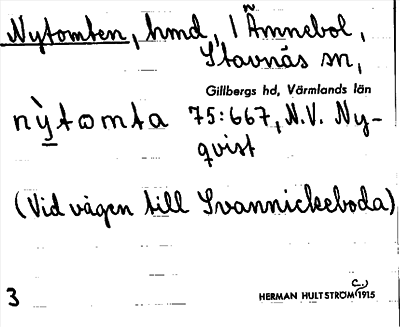 Nytomten, hmd, 1 Ämnebol,
Stavnäs sn,
Gillbergs hd, Värmlands län
nỳtomta 75:667, N.V. Ny-
qvist
(Vid vägen till Svannickeboda)
3
HERMAN HULTSTRÖM 1915